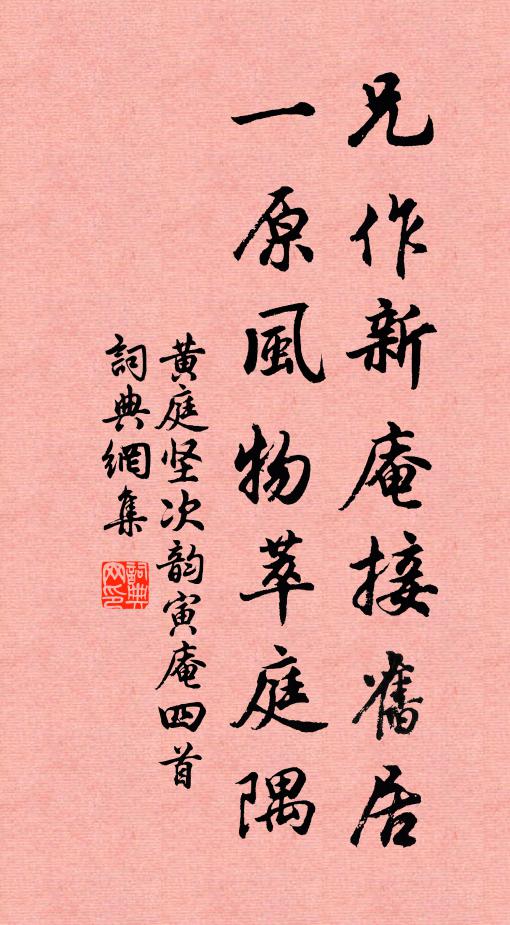 兄作新庵接舊居
一原風物萃庭隅
黄庭坚次韵寅庵四首
詞典網集
詞典网印